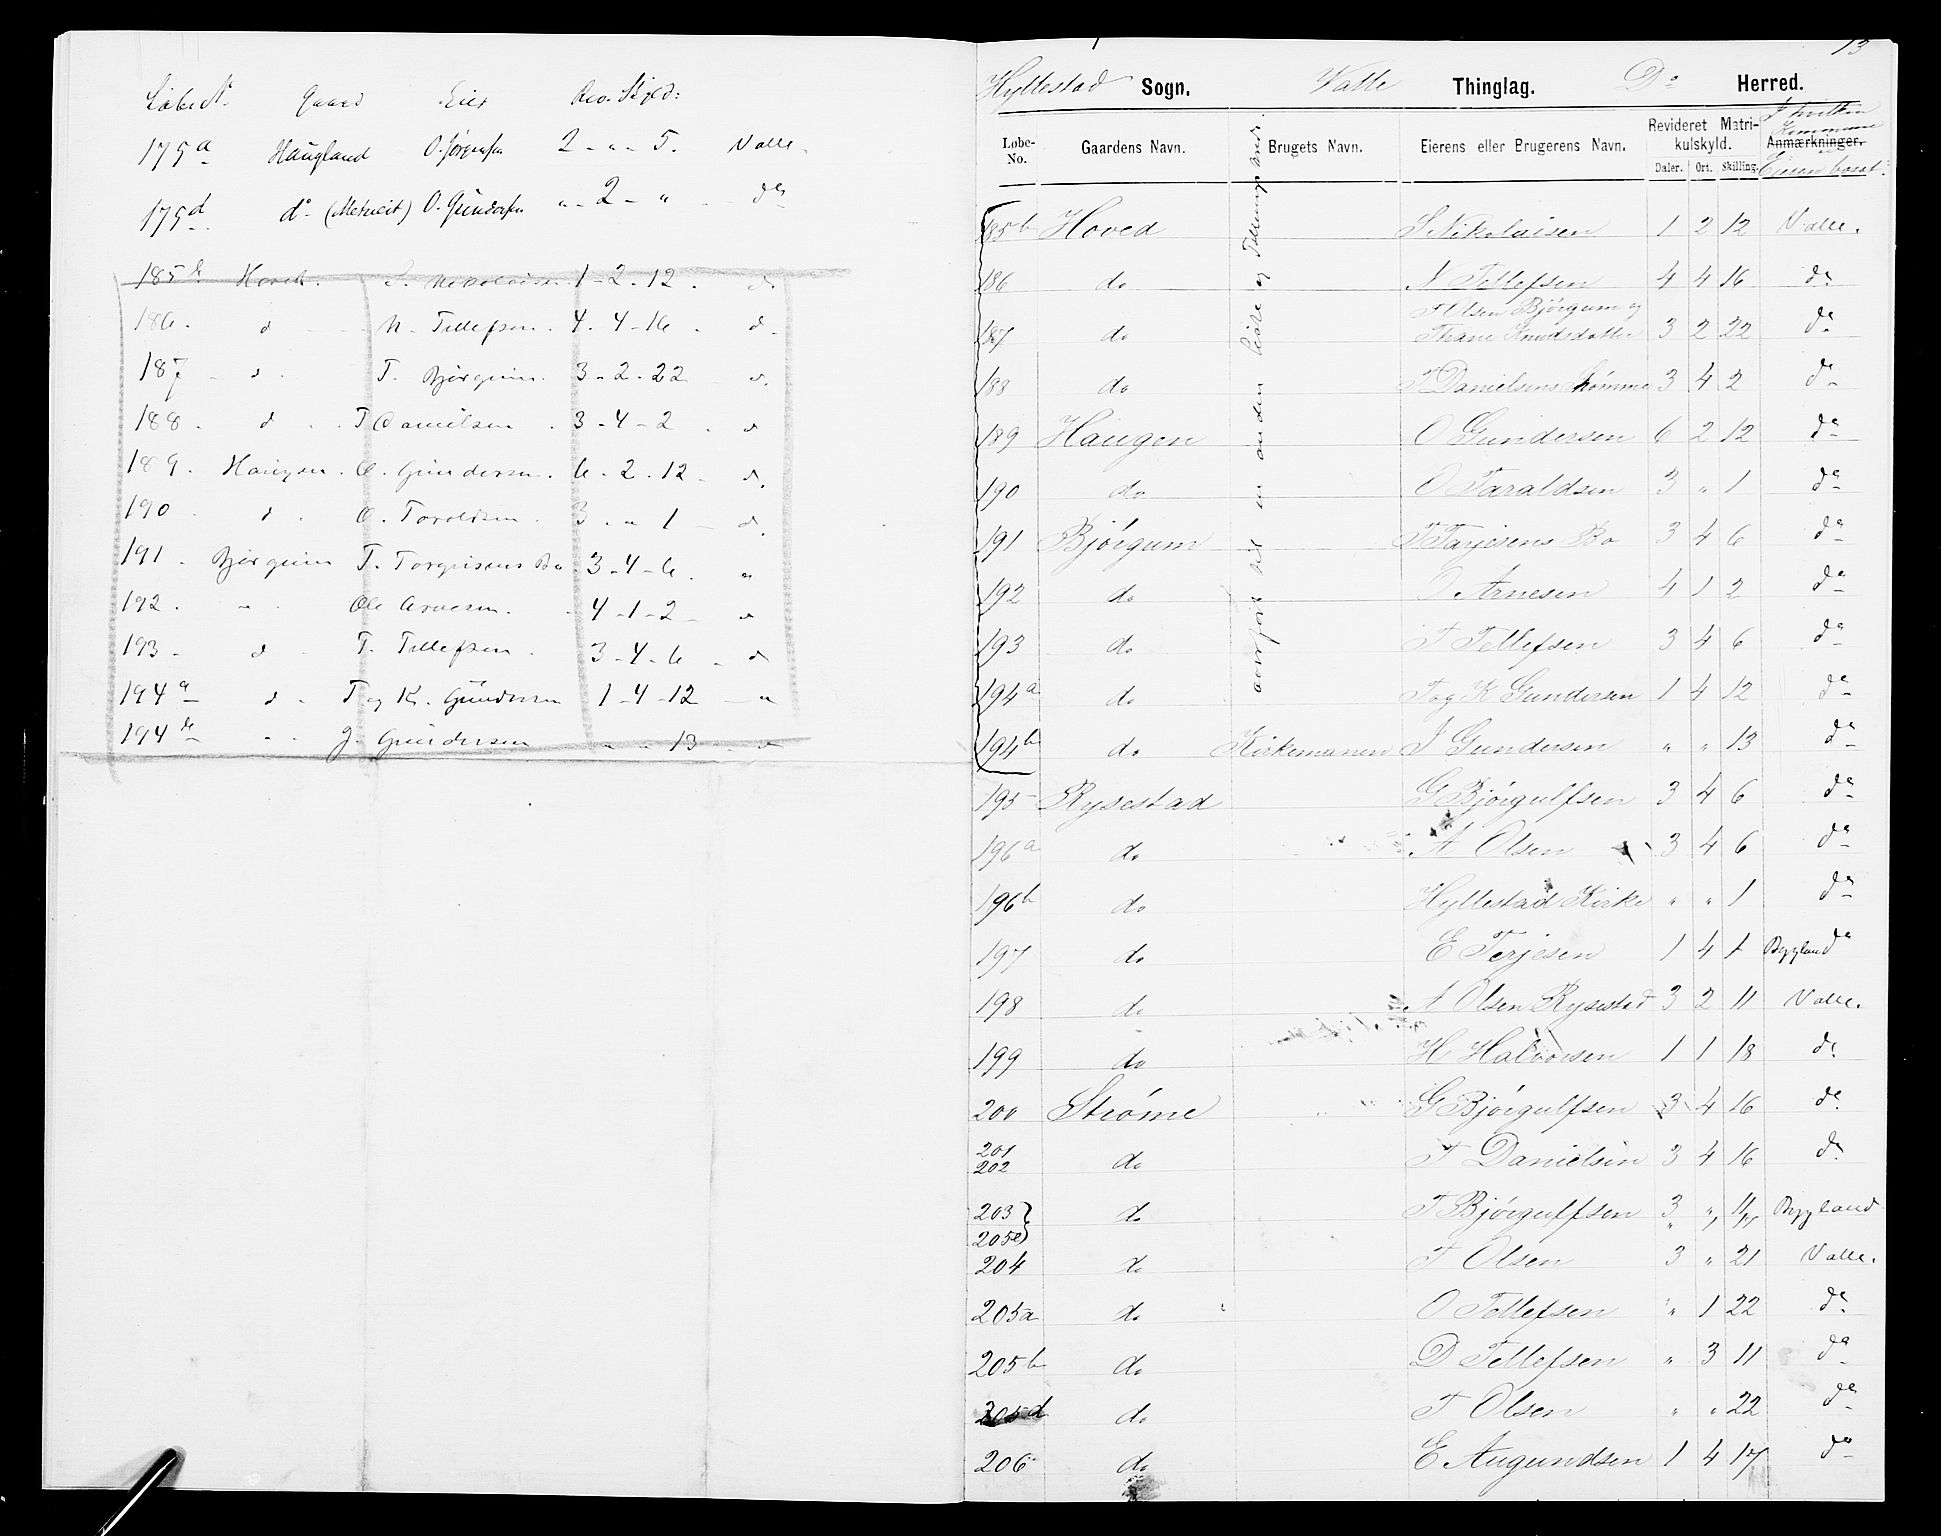 Løbe N. Gaard Eier Rev. Skyld:
175a Haugland O. Jørgensen 2 - " - 5. Valle.
175d do (Metveit) O. Gundersen " - 2 - " do
185b Hoved. S. Nikolaisen 1 - 2 - 12. do
186. d N. Tellefsen. 4. 4 - 16. d.
187 d. T. Bjørgum. 3 - 2 - 22 d.
188. d. T Danielsen. 3 - 4 - 2. d
189. Haugen. O. Gundersen. 6. 2. 12 d.
190 d. O. Taroldsen. 3. " 1 d.
191. Bjørgum T. Torgeisens Bo 3 - 4 - 6. "
192. " Ole Arnesen. 4 - 1 - 2 d
193. d T. Tellefsen. 3 - 4 - 6. d
194a d. T og K. Gundersen 1 - 4 - 12 "
194b " J. Gundersen " " 13 d
13
Hyllestad Sogn. Valle Thinglag. Do Herred.
Løbe-No. Gaardens Navn. Brugets Navn. Eierens eller Brugerens Navn. Revideret Matrikulskyld. Daler. Ort. Skilling. Anmærkninger. I hvilken Kommune Eieren er bosat.
overført til en anden Liste og
185b Hoved S Nikolaisen 1 2 12 Valle.
186 do N Tellefsen 4 4 16 do
187 do T Olsen Bjørgum og Thane Knudsdatter 3 2 22 do
188 do T Danielsens 3 4 2 do
189 Haugen O Gundersen 6 2 12 do
190 do O Taraldsen 3 " 1 do
191 Bjørgum T Tarjeisens Bo 3 4 6 do
192 do O Arnesen 4 1 2 do
193 do T Tellefsen 3 4 6 do
194a do T og K Gundersen 1 4 12 do
194b do Kirkemonen J Gundersen " " 13 do
195 Rysestad G Bjørgulfsen 3 4 6 do
196a do A Olsen 3 4 6 do
196b do Hyllestad Kirke " " 1 do
197 do E Terjesen 1 4 1 Bygland do
198 do A Olsen Rysestad 3 2 11 Valle.
199 do H Halvorsen 1 1 18 do
200 Strøme G Bjørgulfsen 3 4 16 do
201 202 do T Danielsen 3 4 16 do
203 205e do T Bjørgulfsen 3 " 11 Bygland
204 do T Olsen 3 " 21 Valle.
205a do O Tellefsen " 1 22 do
205b do D Tellefsen " 3 11 do
205d do T Olsen " " 22 do
206 do E Augundsen 1 4 17 do